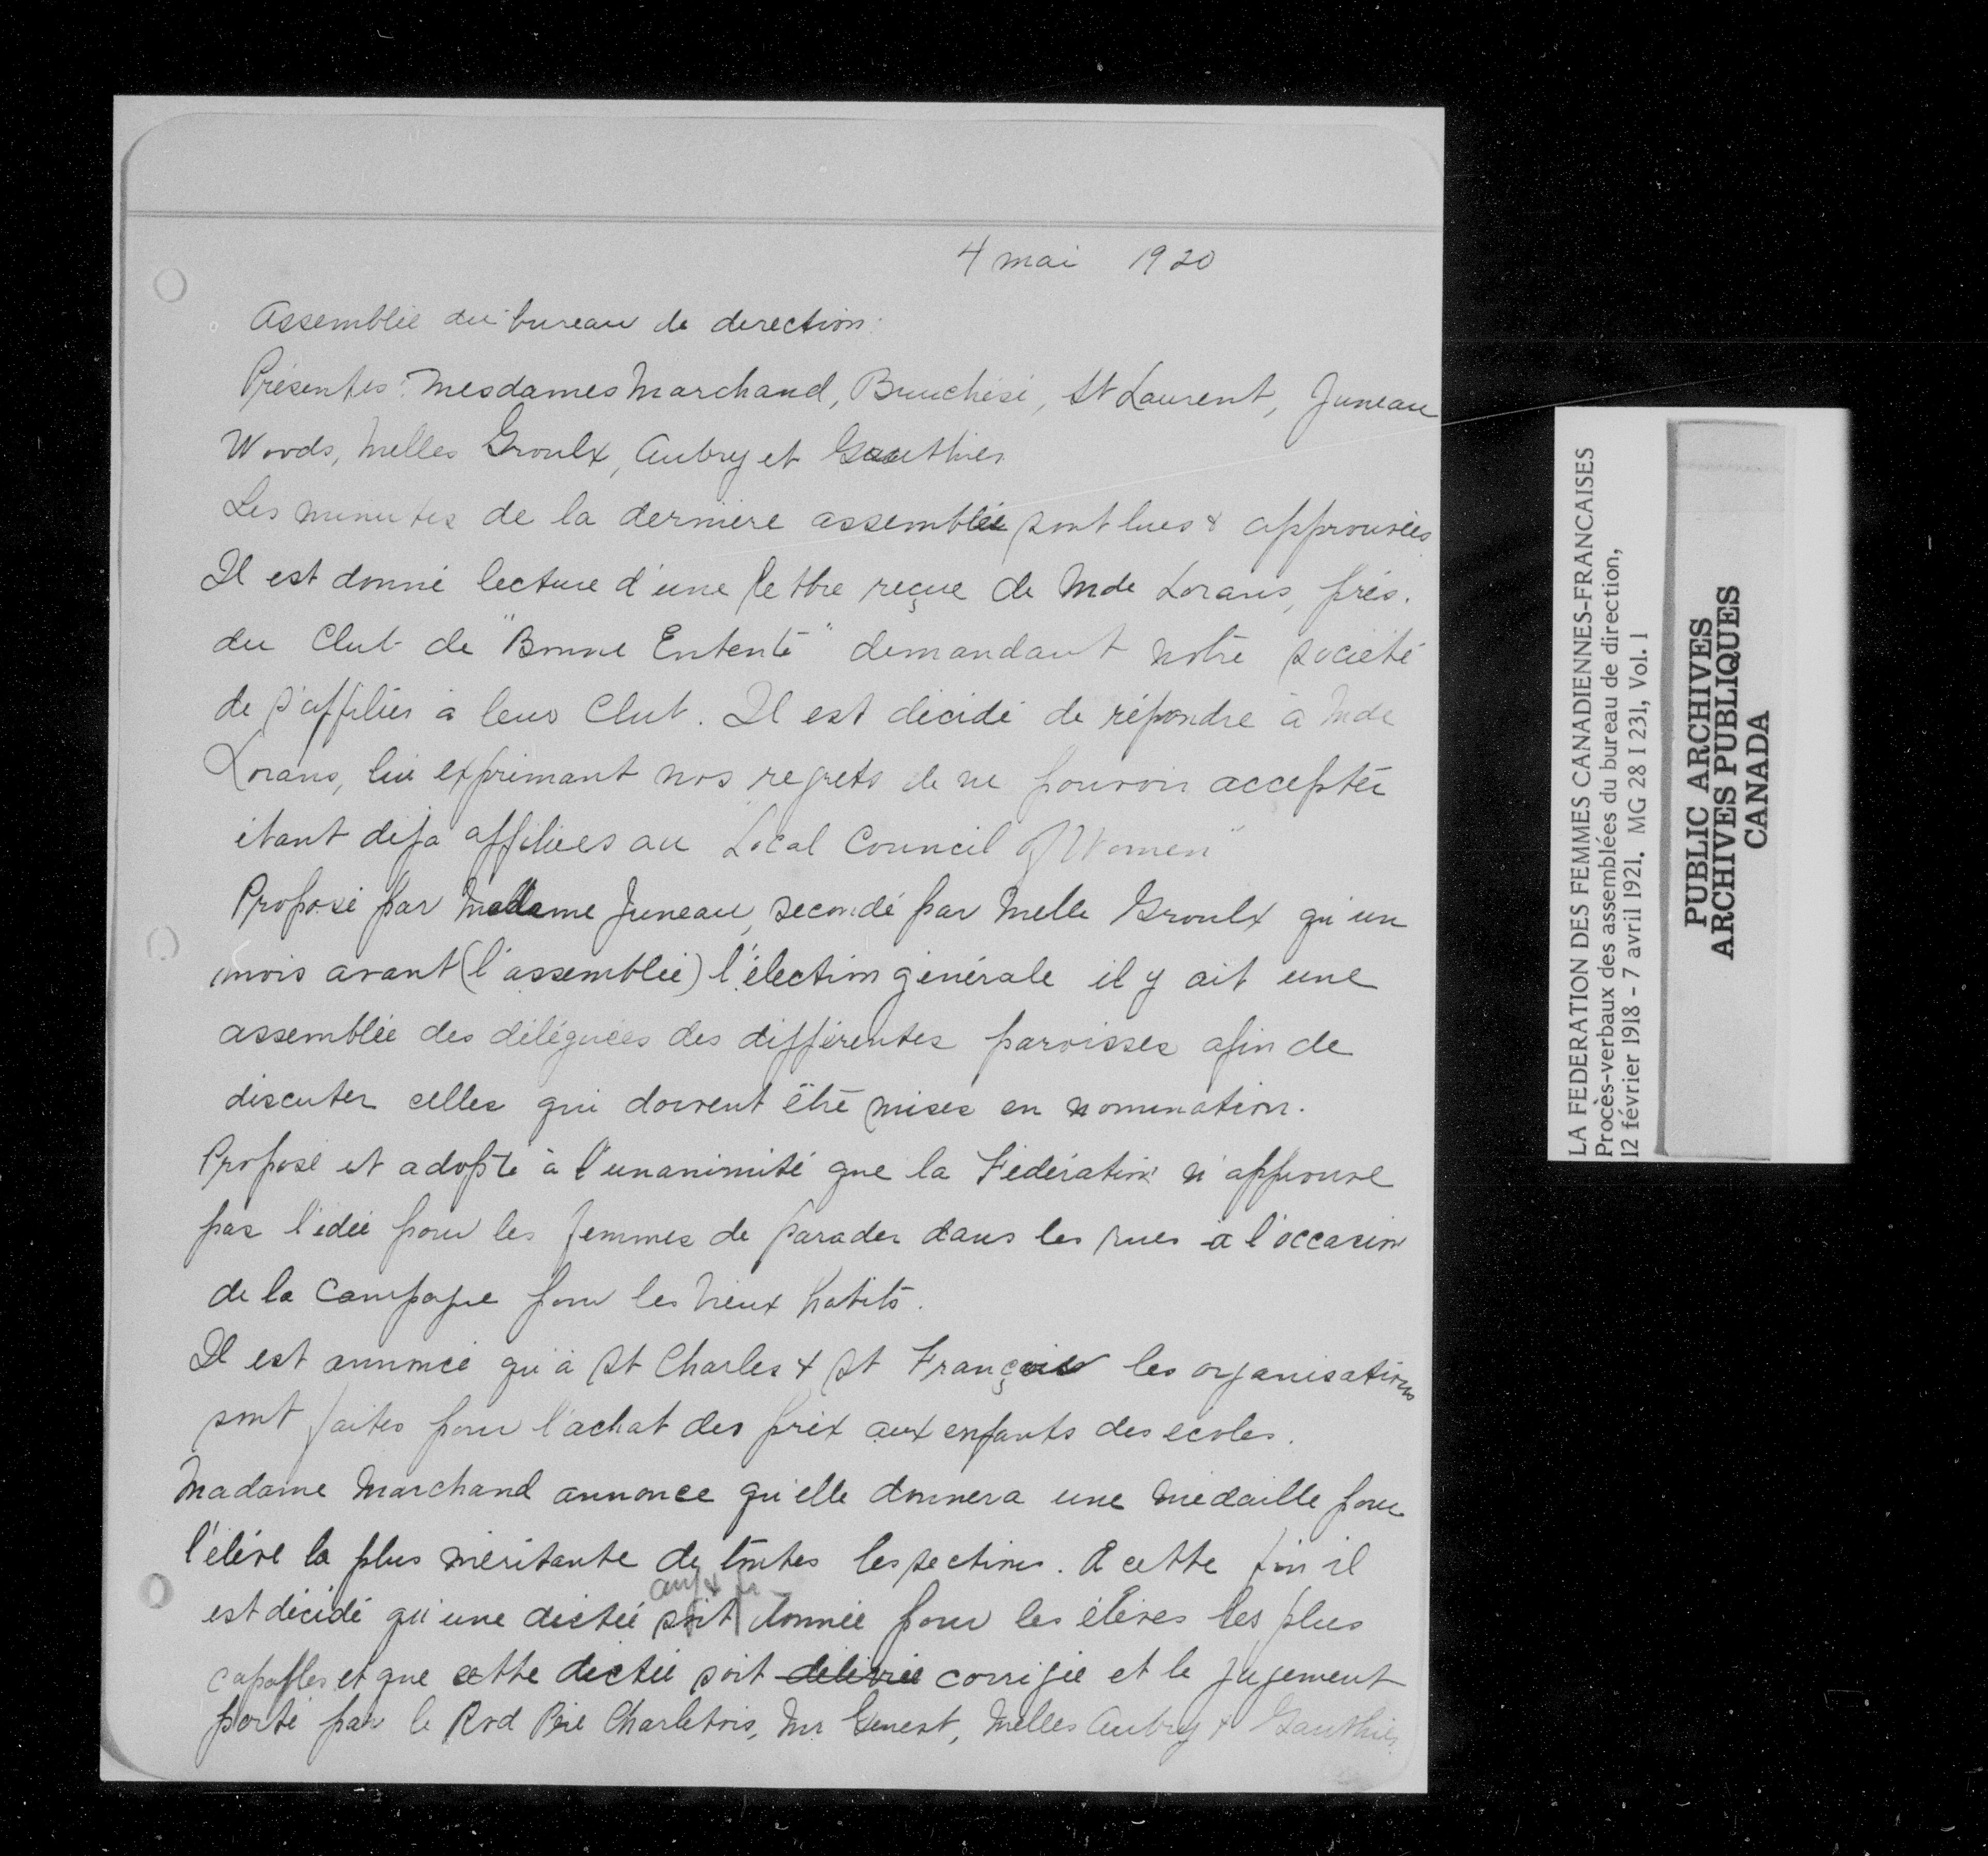 4 mai 1920
Assemblée du bureau de direction:
Présentes: Mesdames Marchand, Bruchési, St Laurent, Juneau
Woods, Melles Groulx, Aubry et Gauthier
Les minutes de la dernière assemblée sont lues & approuvées
Il est donné lecture d'une lettre reçue de Mde Lorans, prés.
du Club de "Bonne Entente" demandant notre société
de s'affilier à leur Club. Il est décidé de répondre à Mde
Lorans, lui exprimant nos regrets de ne pouvoir accepter
étant déjà affiliées au "Local Council of Women"
Proposé par Madame Juneau, secondé par Melle Groulx qu'un
mois avant (l'assemblée) l'élection générale il y ait une
assemblée des déléguées des différentes paroisses afin de
discuter celles qui doivent être mises en nomination.
Proposé et adopté à l'unanimité que la Fédération n'approuve
pas l'idée pour les femmes de parader dans les rues à l'occasion
de la Campagne pour les vieux habits.
Il est annoncé qu'à St Charles & St François les organisations
sont faites pour l'achat des prix aux enfants des écoles.
Madame Marchand annonce qu'elle donnera une médaille pour
l'élève la plus méritante de toutes les sections. A cette fin il
ang & fr
est décidé qu'une dictée soit donnée pour les élèves les plus
capables et que cette dictée soit délivrée corrigée et le jugement
porté par le Rvd Père Charlebois, Mr Genest, Melles Aubry & Gauthier
LA FEDERATION DES FEMMES CANADIENNES-FRANCAISES
Procès-verbaux des assemblées du bureau de direction,
12 février 1918 - 7 avril 1921. MG 28 I 231, Vol. 1
PUBLIC ARCHIVES
ARCHIVES PUBLIQUES
CANADA